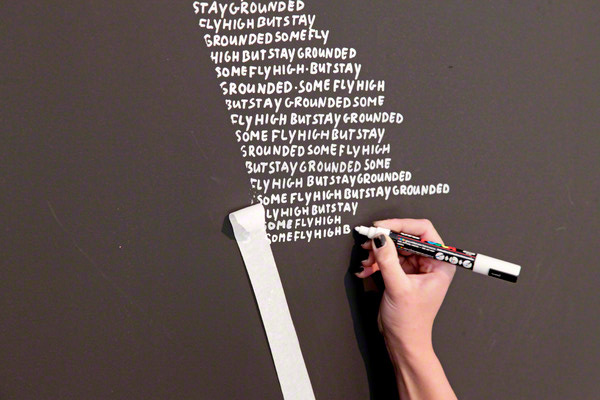 STAY GROUNDED
FLY HIGH BUT STAY
GROUNDED SOME FLY
HIGH BUT STAY GROUNDED
SOME FLY HIGH · BUT STAY
GROUNDED · SOME FLY HIGH
BUT STAY GROUNDED SOME
FLY HIGH BUT STAY GROUNDED
SOME FLY HIGH BUT STAY
GROUNDED SOME FLY HIGH
BUT STAY GROUNDED SOME
FLY HIGH BUT STAY GROUNDED
SOME FLY HIGH BUT STAY GROUNDED
FLY HIGH BUT STAY
SOME FLY HIGH
SOME FLY HIGH B